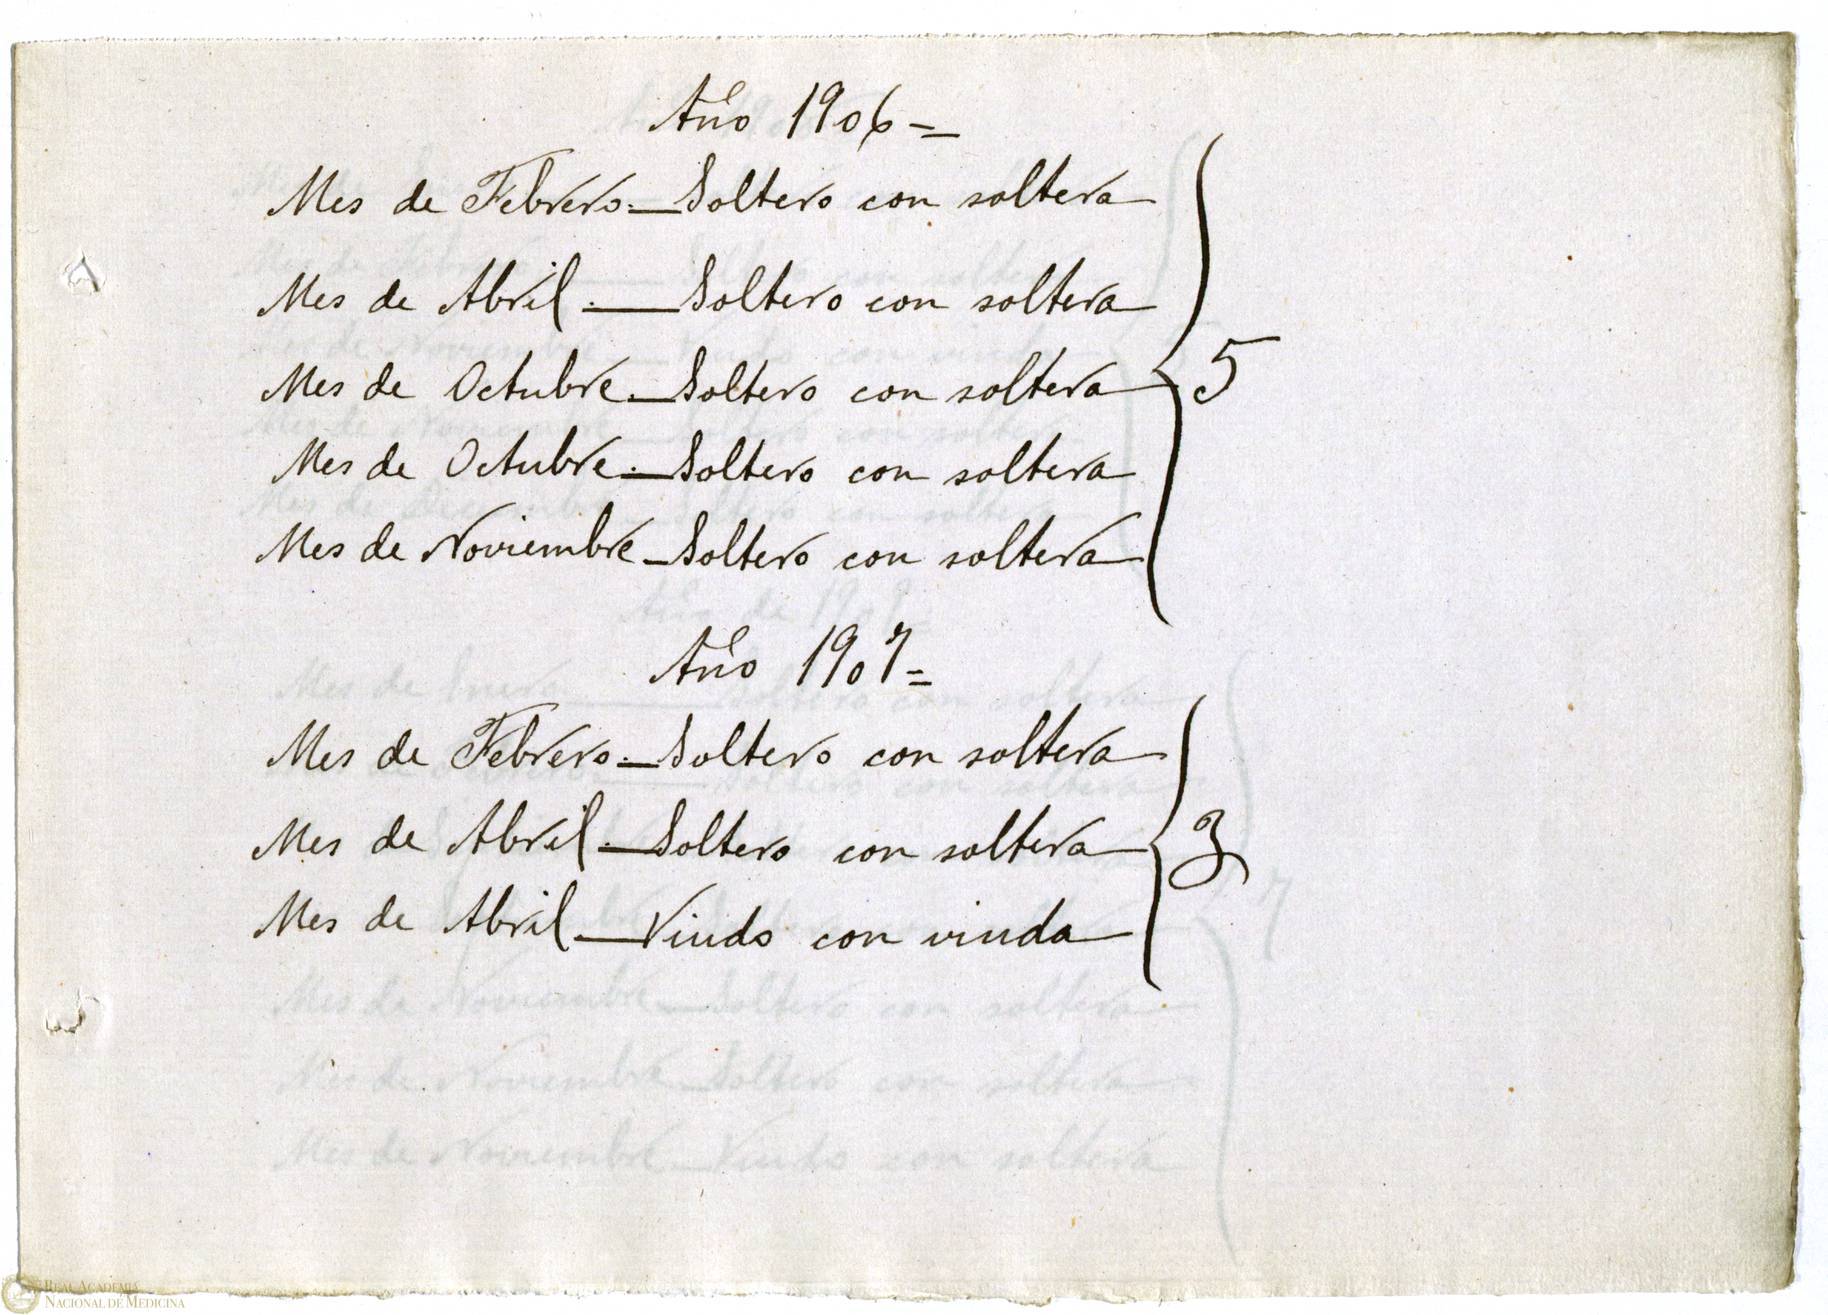 Año 1906=
Mes de Febrero.—Soltero con soltera
Mes de Abril.—Soltero con soltera
Mes de Octubre.—Soltero con soltera
5
Mes de Octubre.—Soltero con soltera
Mes de Noviembre—Soltero con soltera
Año 1907=
Mes de Febrero.—Soltero con soltera
Mes de Abril.—Soltero con soltera
3
Mes de Abril.—Viudo con viuda
REAL ACADEMIA
NACIONAL DE MEDICINA